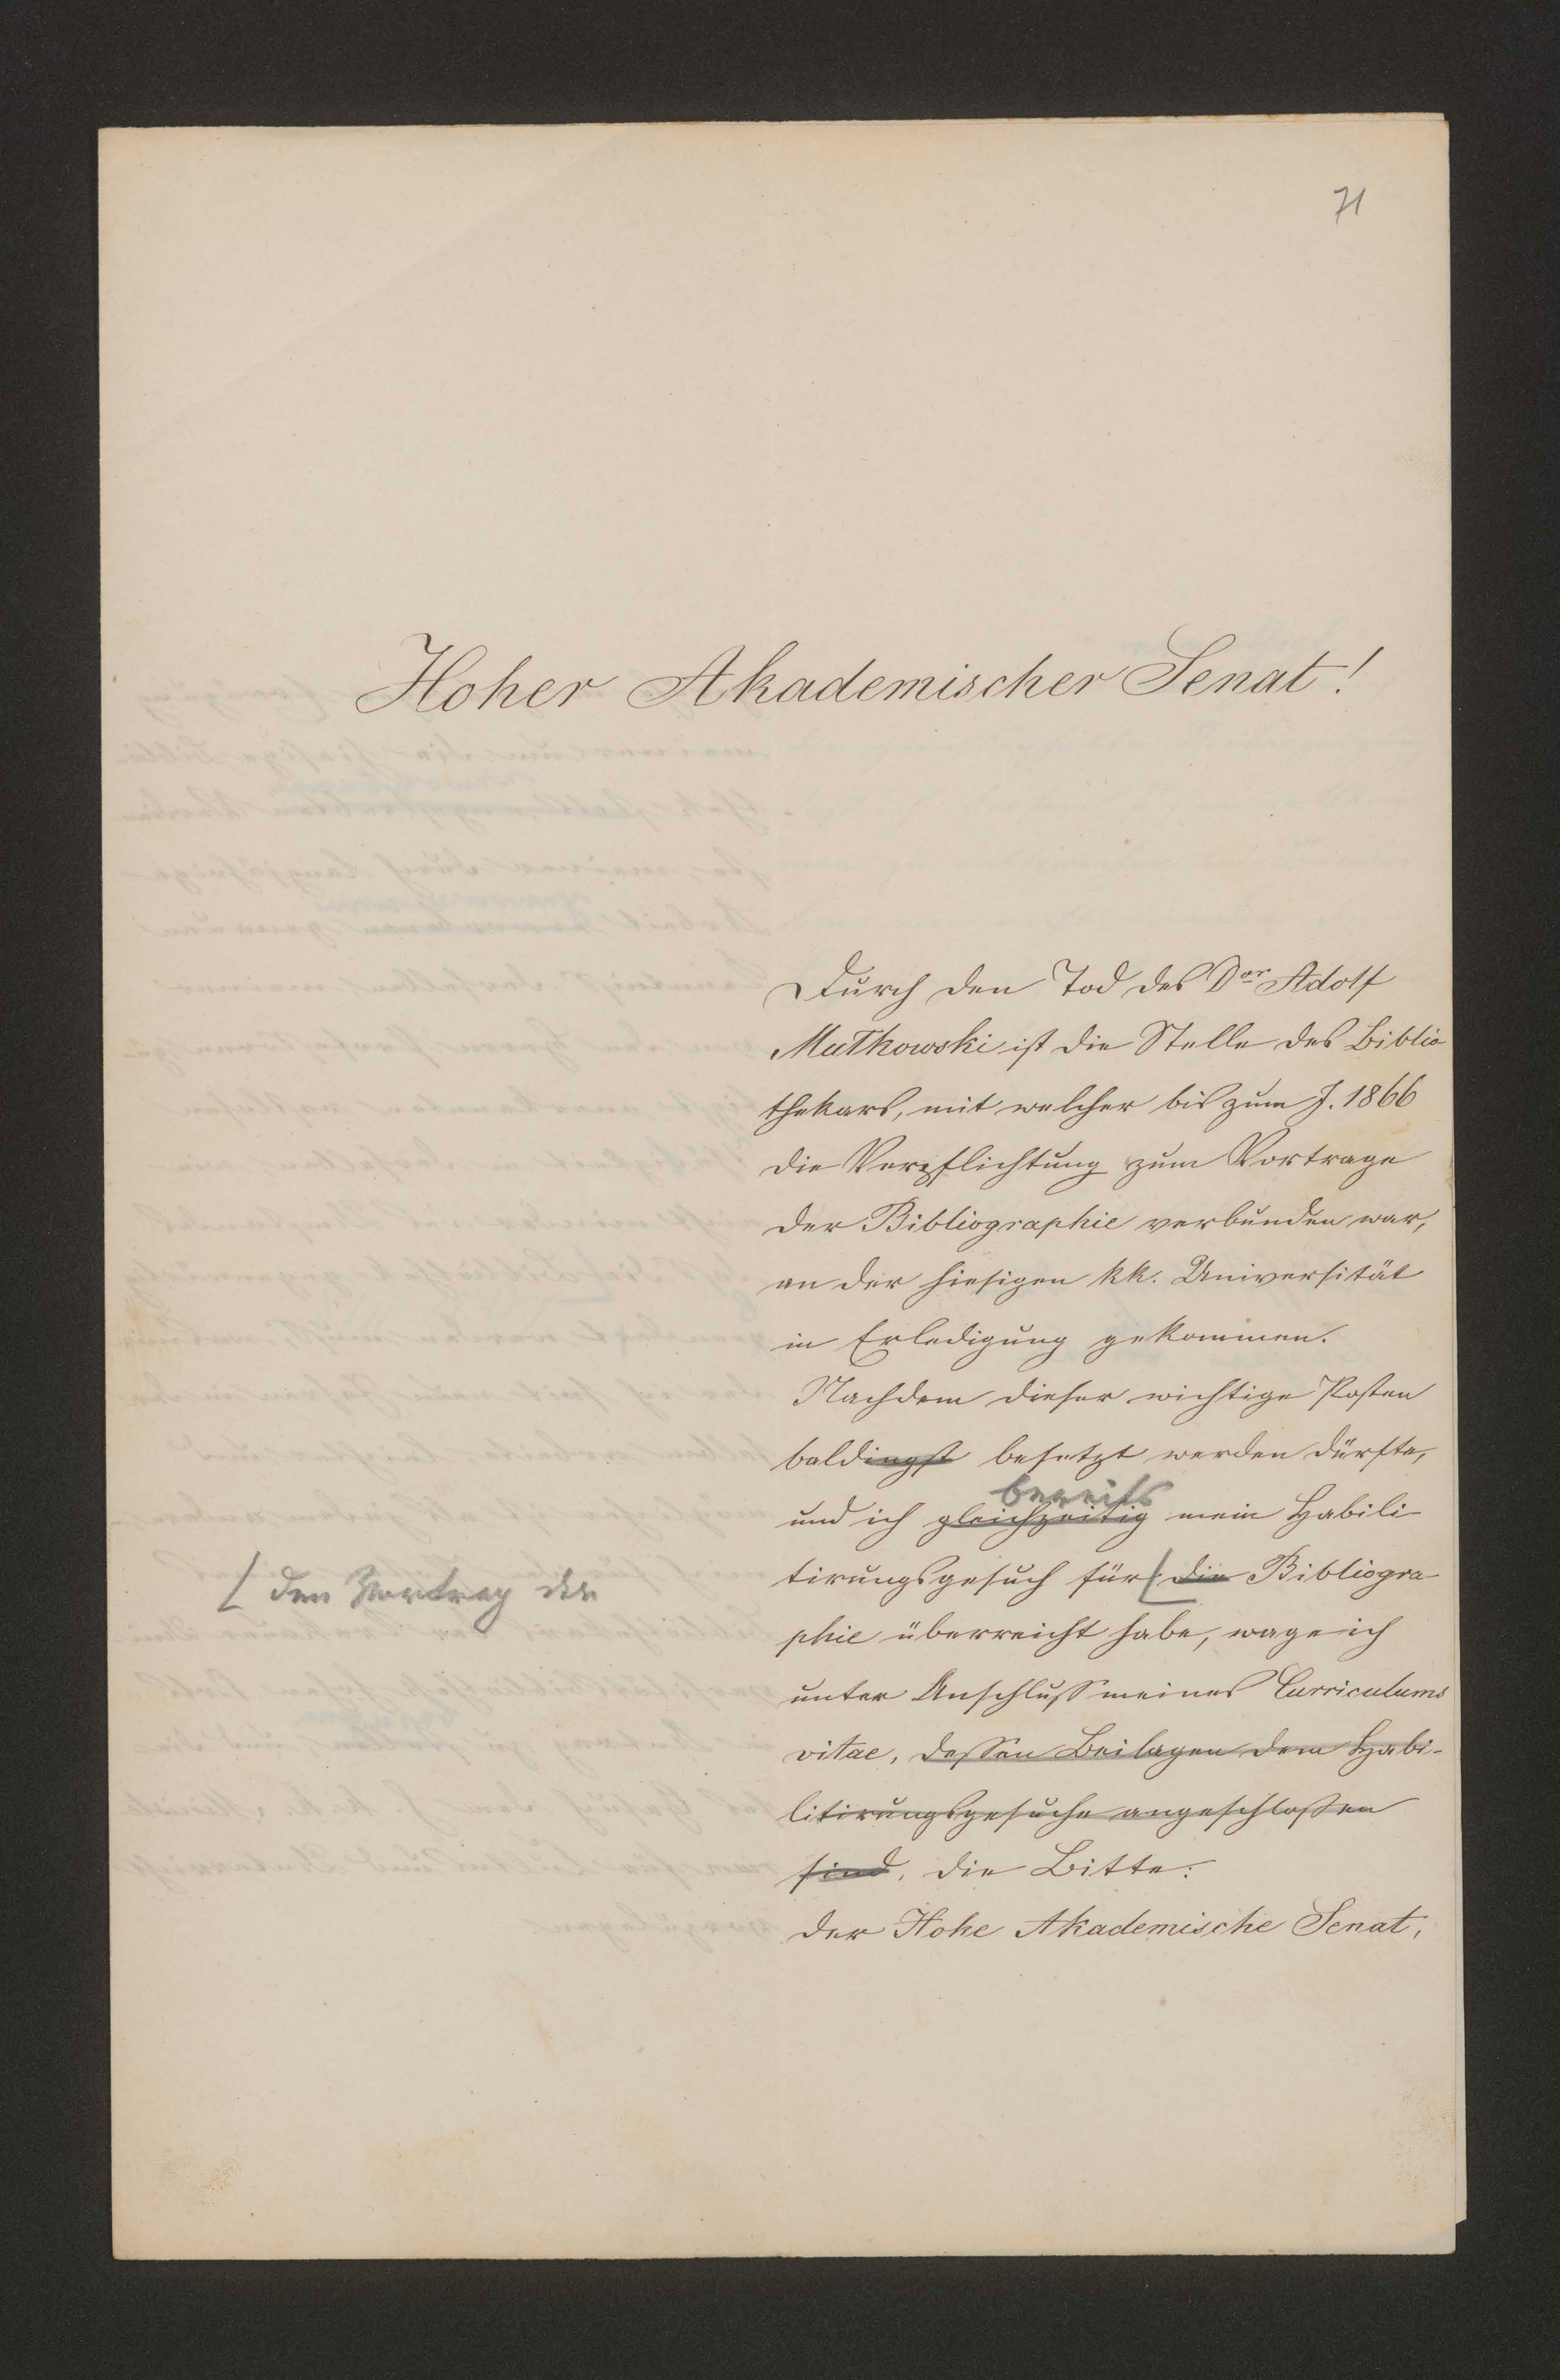 71
Hoher Akademischer Senat!
Durch den Tod des Dor Adolf
Mutkowski ist die Stelle des Biblio
thekars, mit welcher bis zum J. 1866
die Verpflichtung zum Vortrage
der Bibliographie verbunden war,
an der hiesigen kk. Universität
in Erledigung gekommen.
Nachdem dieser wichtige Posten
baldingst besetzt werden dürfte,
bereits
und ich gleichzeitig mein Habili-
[ den Vortrag der
tirungsgesuch für [ die Bibliogra
phie überreicht habe, wage ich
unter Anschluß meines Curriculums
vitae, dessen Beilagen dem Habi-
litirungsgesuche angeschlossen
sind, die Bitte:
der Hohe Akademische Senat,